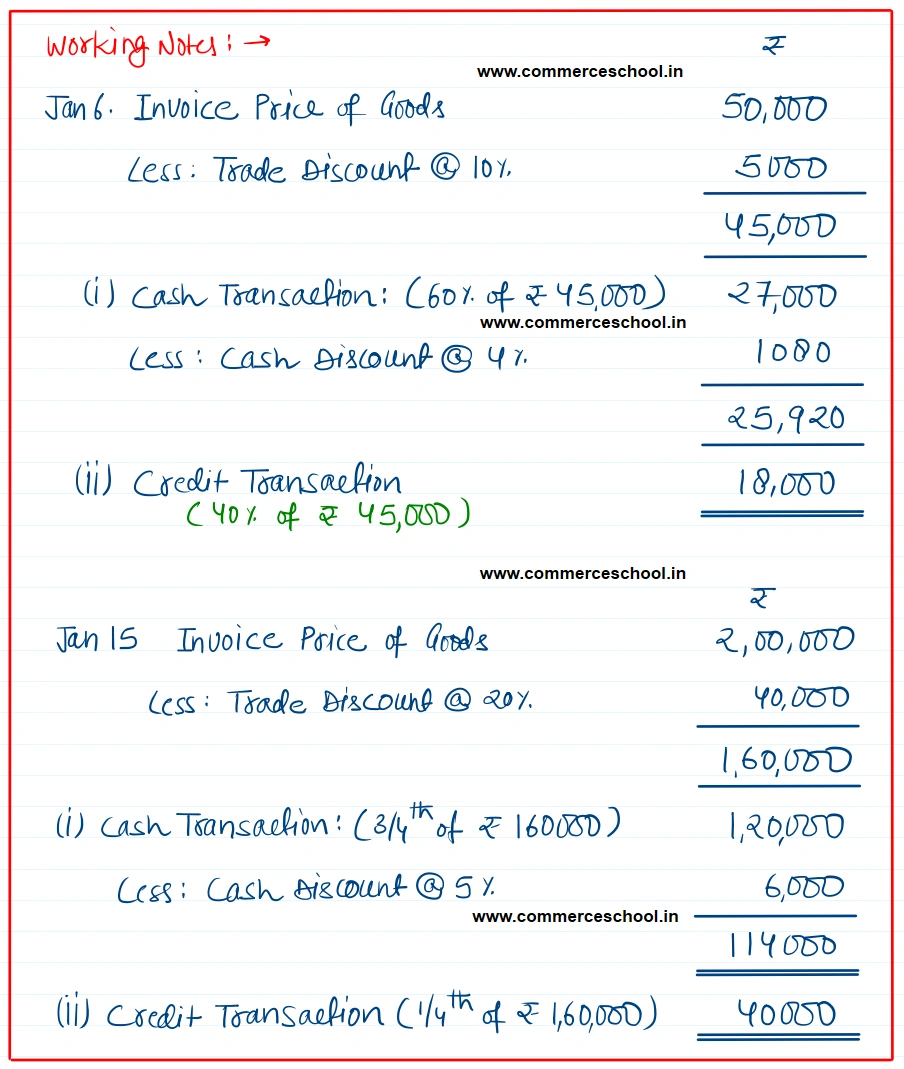 Working Notes: →
₹
www.commerceschool.in
Jan 6. Invoice Price of Goods 50,000
Less: Trade Discount @ 10%. 5000
45,000
(i) Cash Transaction: (60% of ₹ 45,000) 27,000
www.commerceschool.in
Less: Cash Discount @ 4%. 1080
25,920
(ii) Credit Transaction 18,000
(40% of ₹ 45,000)
www.commerceschool.in
₹
Jan 15 Invoice Price of Goods 2,00,000
Less: Trade Discount @ 20%. 40,000
1,60,000
(i) Cash Transaction: (3/4th of ₹ 160000) 1,20,000
Less: Cash Discount @ 5%. 6,000
www.commerceschool.in
114000
(ii) Credit Transaction (1/4th of ₹ 1,60,000) 40000